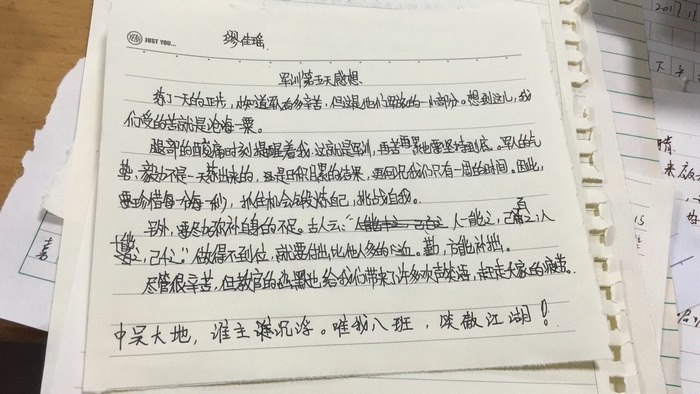 JUST YOU...
缪佳瑶
军训第五天感想
练了一天的正步,才知道军姿多辛苦,但这是他们军旅的一小部分。想到这儿,我
们受的苦就是沧海一粟。
腿部的酸痛时刻提醒着我,这就是军训,再苦再累也要坚持到底。军人的气
势、毅力不是一天练出来的,都是日积月累的结果,更何况我们只有一周的时间。因此,
要珍惜每个每一秒,抓住机会去锻炼自己,挑战自我。
另外,要尽力弥补自身的不足。古人云:“人一能之,己百之;人
十能之,己千之。”做得不到位,就要付出比他人多的心血。勤,方能补拙。
尽管很辛苦,但教官的幽默也给我们带来了许多欢声笑语,赶走大家的疲劳。
中吴大地,谁主沉浮。唯我八班,笑傲江湖!
2017.11
下午
晴
15